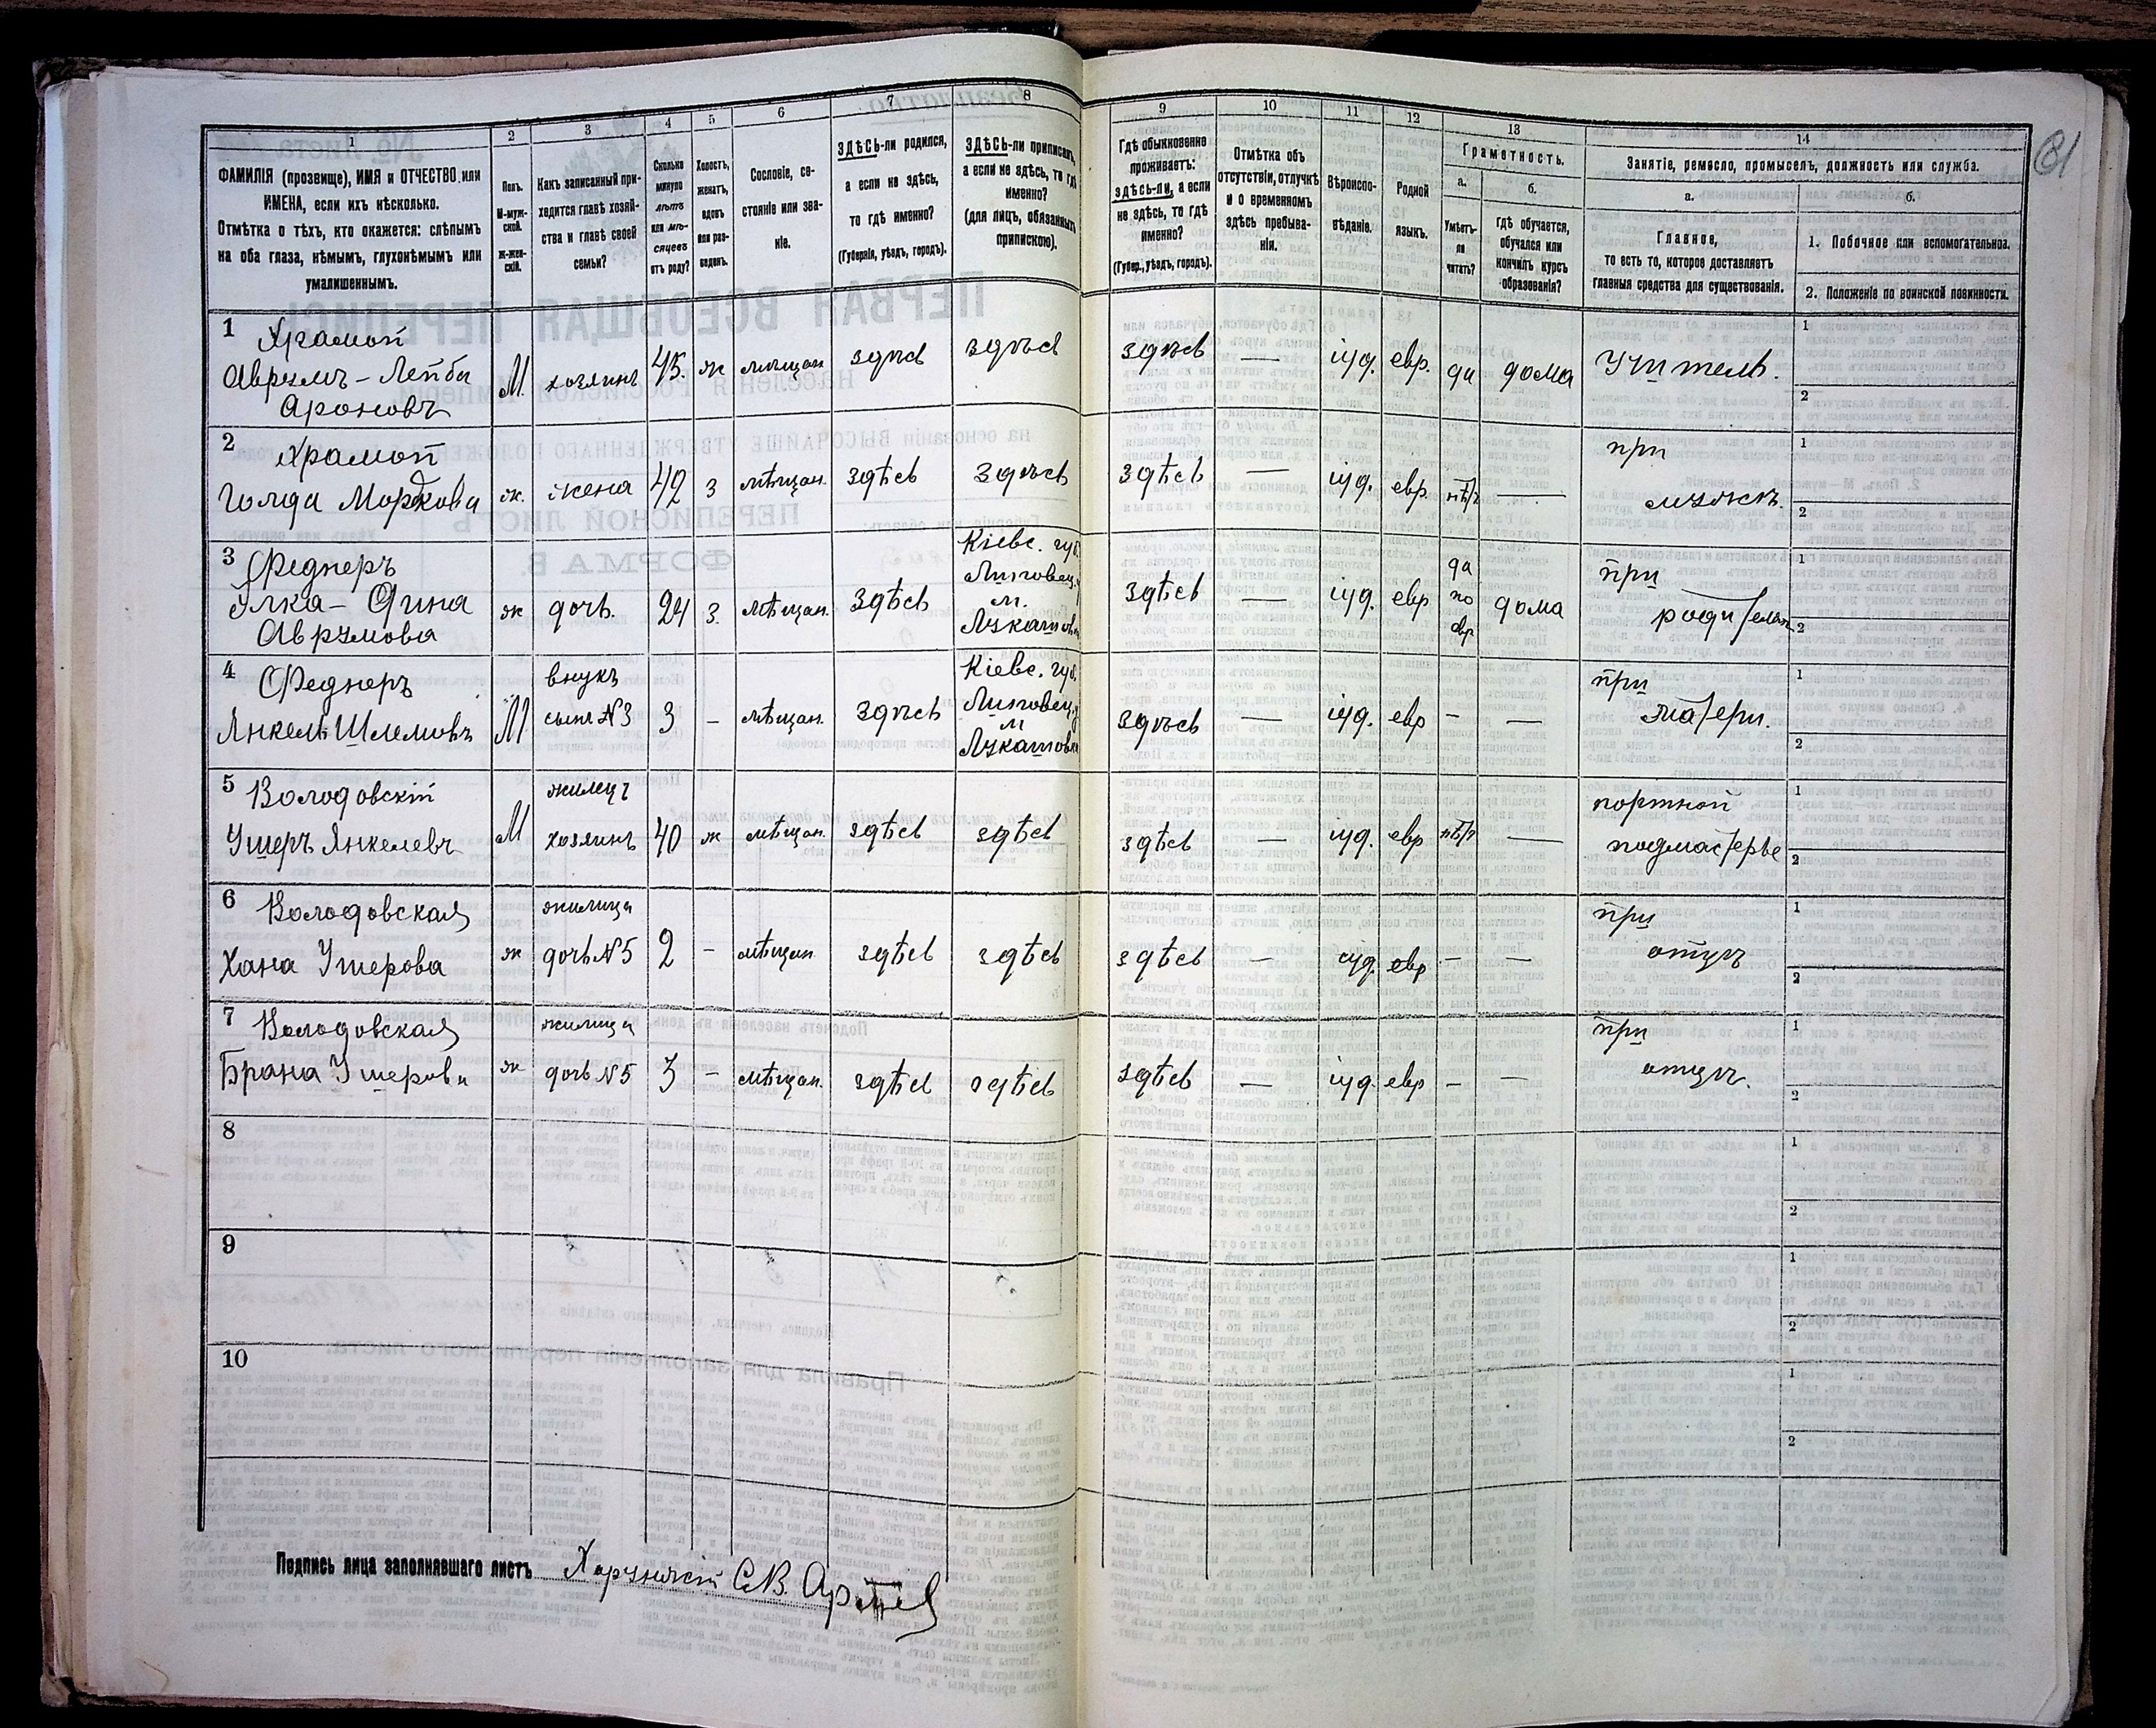 81
1 2 3 4 5 6 7 8 9 10 11 12 13 14
ФАМИЛІЯ (прозвище), ИМЯ и ОТЧЕСТВО или
ИМЕНА, если ихъ нѣсколько.
Отмѣтка о тѣхъ, кто окажется: слѣпымъ
на оба глаза, нѣмымъ, глухонѣмымъ или
умалишеннымъ.
Полъ.
М-муж-
ской.
ж-жен-
скій.
Какъ записанный при-
ходится главѣ хозяй-
ства и главѣ своей
семьи?
Сколько
минуло
лѣтъ
или мѣ-
сяцевъ
отъ роду?
Холостъ,
женатъ,
вдовъ
или раз-
веденъ.
Сословіе, со-
стояніе или зва-
ніе.
ЗДѢСЬ-ли родился,
а если не здѣсь,
то гдѣ именно?
(Губернія, уѣздъ, городъ).
ЗДѢСЬ-ли приписанъ,
а если не здѣсь, то гдѣ
именно?
(для лицъ, обязанныхъ
припискою).
Гдѣ обыкновенно
проживаетъ:
здѣсь-ли, а если
не здѣсь, то гдѣ
именно?
(Губер., уѣздъ, городъ).
Отмѣтка объ
отсутствіи, отлучкѣ
и о временномъ
здѣсь пребыва-
ніи.
Вѣроиспо-
вѣданіе.
Родной
языкъ.
Грамотность.
а.
Умѣетъ-
ли
читать?
б.
Гдѣ обучается,
обучался или
кончилъ курсъ
образованія?
Занятіе, ремесло, промыселъ, должность или служба.
а.
Главное,
то есть то, которое доставляетъ
главныя средства для существованія.
б.
1. Побочное или вспомогательное.
2. Положеніе по воинской повинности.
1 Храмой
Аврумъ-Лейба
Ароновъ
М. хозяинъ 45. ж мѣщан здѣсь здѣсь здѣсь — іуд. евр. да дома Учитель.
1
2
2 Храмой
Голда Моркова
ж. жена 42 з мѣщан. здѣсь здѣсь здѣсь — іуд. евр. нѣтъ — при
мужѣ.
1
2
3 Федперъ
Элка-Фина
Аврумова
ж дочь. 24 з. мѣщан. здѣсь Кіевс. губ.
Липовец. у
м.
Лукашовка
здѣсь — іуд. евр да
по
евр
дома при
родителях
1
2
4 Федперъ
Янкель Шлемовъ
М внукъ
сынъ №3
3 - мѣщан. здѣсь Кіевс. губ.
Липовец. у
м
Лукашовка
здѣсь — іуд. евр - — при
матери.
1
2
5 Володовскій
Ушеръ Янкелевъ
М жилецъ
хозяинъ
40 ж мѣщан. здѣсь здѣсь здѣсь — іуд. евр нѣтъ — портной
подмастерье
1
2
6 Володовская
Хана Ушерова
ж жилица
дочь №5
2 - мѣщан здѣсь здѣсь здѣсь — іуд. евр - — при
отцѣ
1
2
7 Володовская
Брана Ушерова
ж жилица
дочь №5
3 - мѣщан. здѣсь здѣсь здѣсь — іуд. евр - — при
отцѣ.
1
2
8
1
2
9
1
2
10
1
2
Подпись лица заполнявшаго листъ